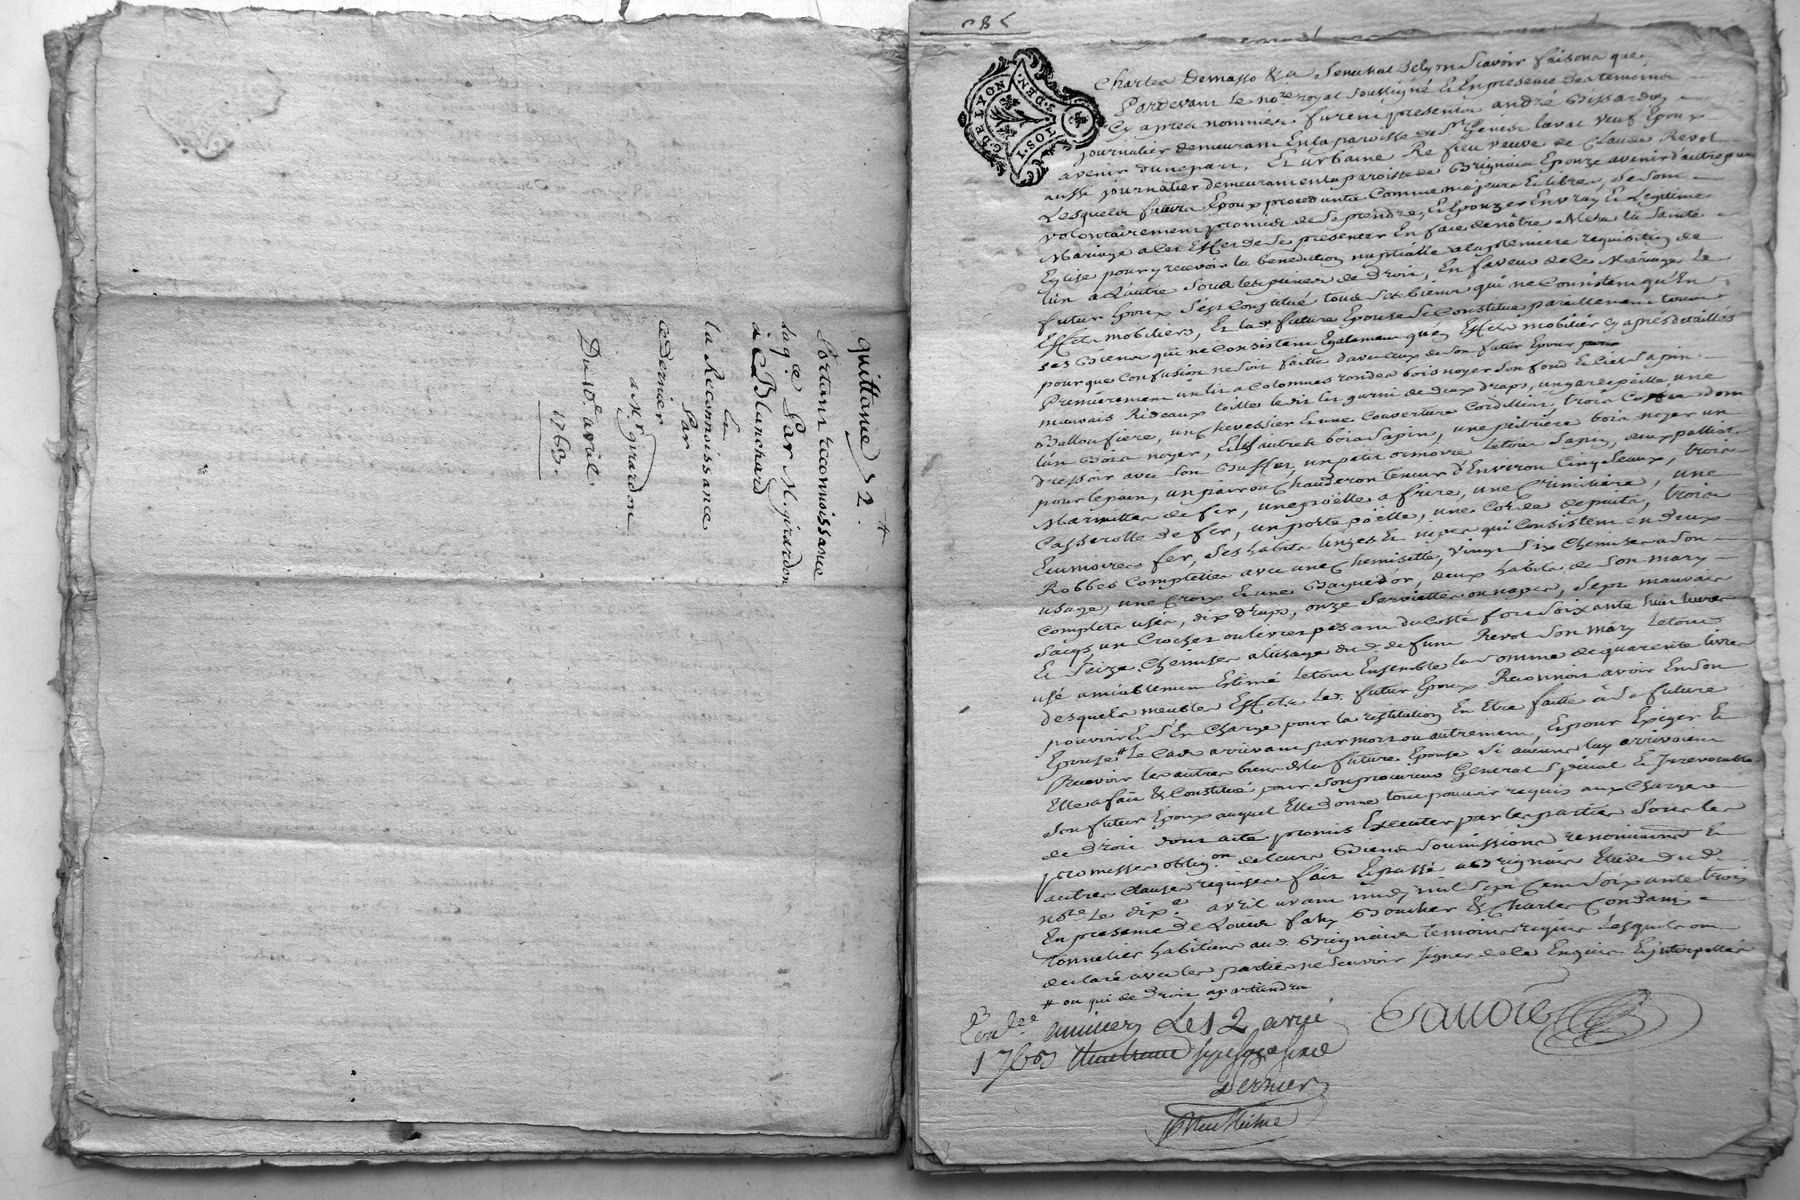 quittance 2.
Portant reconnoissance
Par Mr girardon
à C. Blanchard
la
la Reconnoissance
Par
ce Dernier
a Mr girardon
Du 10e avril
1763.
G. DE LYON
1. SOL. 3. DEN.
Charles Demasso &a Senechal de Lyon Scavoir faisons que
Pardevant le nore royal Soussigné & En presence des temoins
Cy apres nommés. furent presents andré Bissardon
journalier demeurant En la paroisse de St Genis laval veuf Epoux
avenir d'une part, Et urbaine veuve de Claude Revol
aussi journalier demeurant en la paroisse de Brignais Epouze avenir d'autre part
Lesquels futurs Epoux procedants Comme majeurs & libres, de Leur
volontairement promis de Se prendre, & Epouzer En vray & Legitime
Mariage a Cet Effet de Se presenter En face de nôtre Mere la Sainte
Eglise pour y recevoir la benediction nuptialle a la premiere requisition de
l'un a L'autre Sous les peines de droit, En faveur de Ce Mariage Le
futur Epoux S'est Constitué tous Ses biens qui ne Consistent qu'En
Effets mobiliers, Et lad. future Epouse Se Constitue pareillement tous
ses Biens qui ne Consistent Egalement qu'En Effets mobiliers Cy aprés detaillés
pour que Confusion ne Soit faitte d'avec Ceux de Son futur Epoux
Premierement un lit a Colomnes rondes bois noyer Son fond & Ciel Sapin
mauvais Rideaux toilles ledit lit garni de deux draps, un garde paille, une
Balloufiere, un chevessier & une Couverture Cordillier, trois Coffres dont
l'un Bois noyer, & les autres bois Sapin, une petriere bois noyer un
dressoir avec Son Buffet, un petit armoire Letout Sapin, deux
pour le pain, un pairou Chauderon teneur d'Environ Cinq Seaux, trois
Marmittes de fer, une poëlle a frire, une Crimiliere, une
Casserolle de fer, un porte poëlle, une Corde de puits, trois
Ecumoires fer, Ses habits linges & nipes qui Consistent en deux
Robbes Complettes avec une Chemisette, vingt Six Chemises a Son
usage, une Croix & une Bague d'or, deux habits de Son mary
Complets usés, dix draps, onze Serviettes ou napes, Sept mauvais
Sacqs, un Crochet ou livres pesant du Costé fort Soixante huit livres
& Seize Chemises a lusage du d. defunt Revol Son mary Letout
usé amiablement Estimé Letout Ensemble la Somme de quarente livres
desquels meubles Effets Led. futur Epoux Reconnoit avoir En Son
pouvoir & S'En Charge pour la restitution En Etre faitte à Sa future
Epouse # Le Cas arrivant par mort ou autrement, & pour Exiger &
Recevoir les autres biens de la future Epouse Si aucuns luy arrivoient
Elle a fait & Constitué pour Son procureur General Special & Irrevocable
Son futur Epoux auquel Elle donne tout pouvoir requis aux Charges
de droit dont acte promis Executer par les parties Sous les
promesses obligon de leurs Biens Soumissions renonciations &
autres Clauses requises fait & passé a Brignais Etude dud.
nore Le dixe avril avant midy mil Sept Cent Soixante trois
En presence de Louis faty Boucher & Charles Condamin
tonnelier habitans aud. Brignais temoins requis Lesquels ont
declaré avec les parties ne Scavoir Signer de Ce Enquis & interpellés
# ou qui de droit apartiendra
avril
1763
Dernier